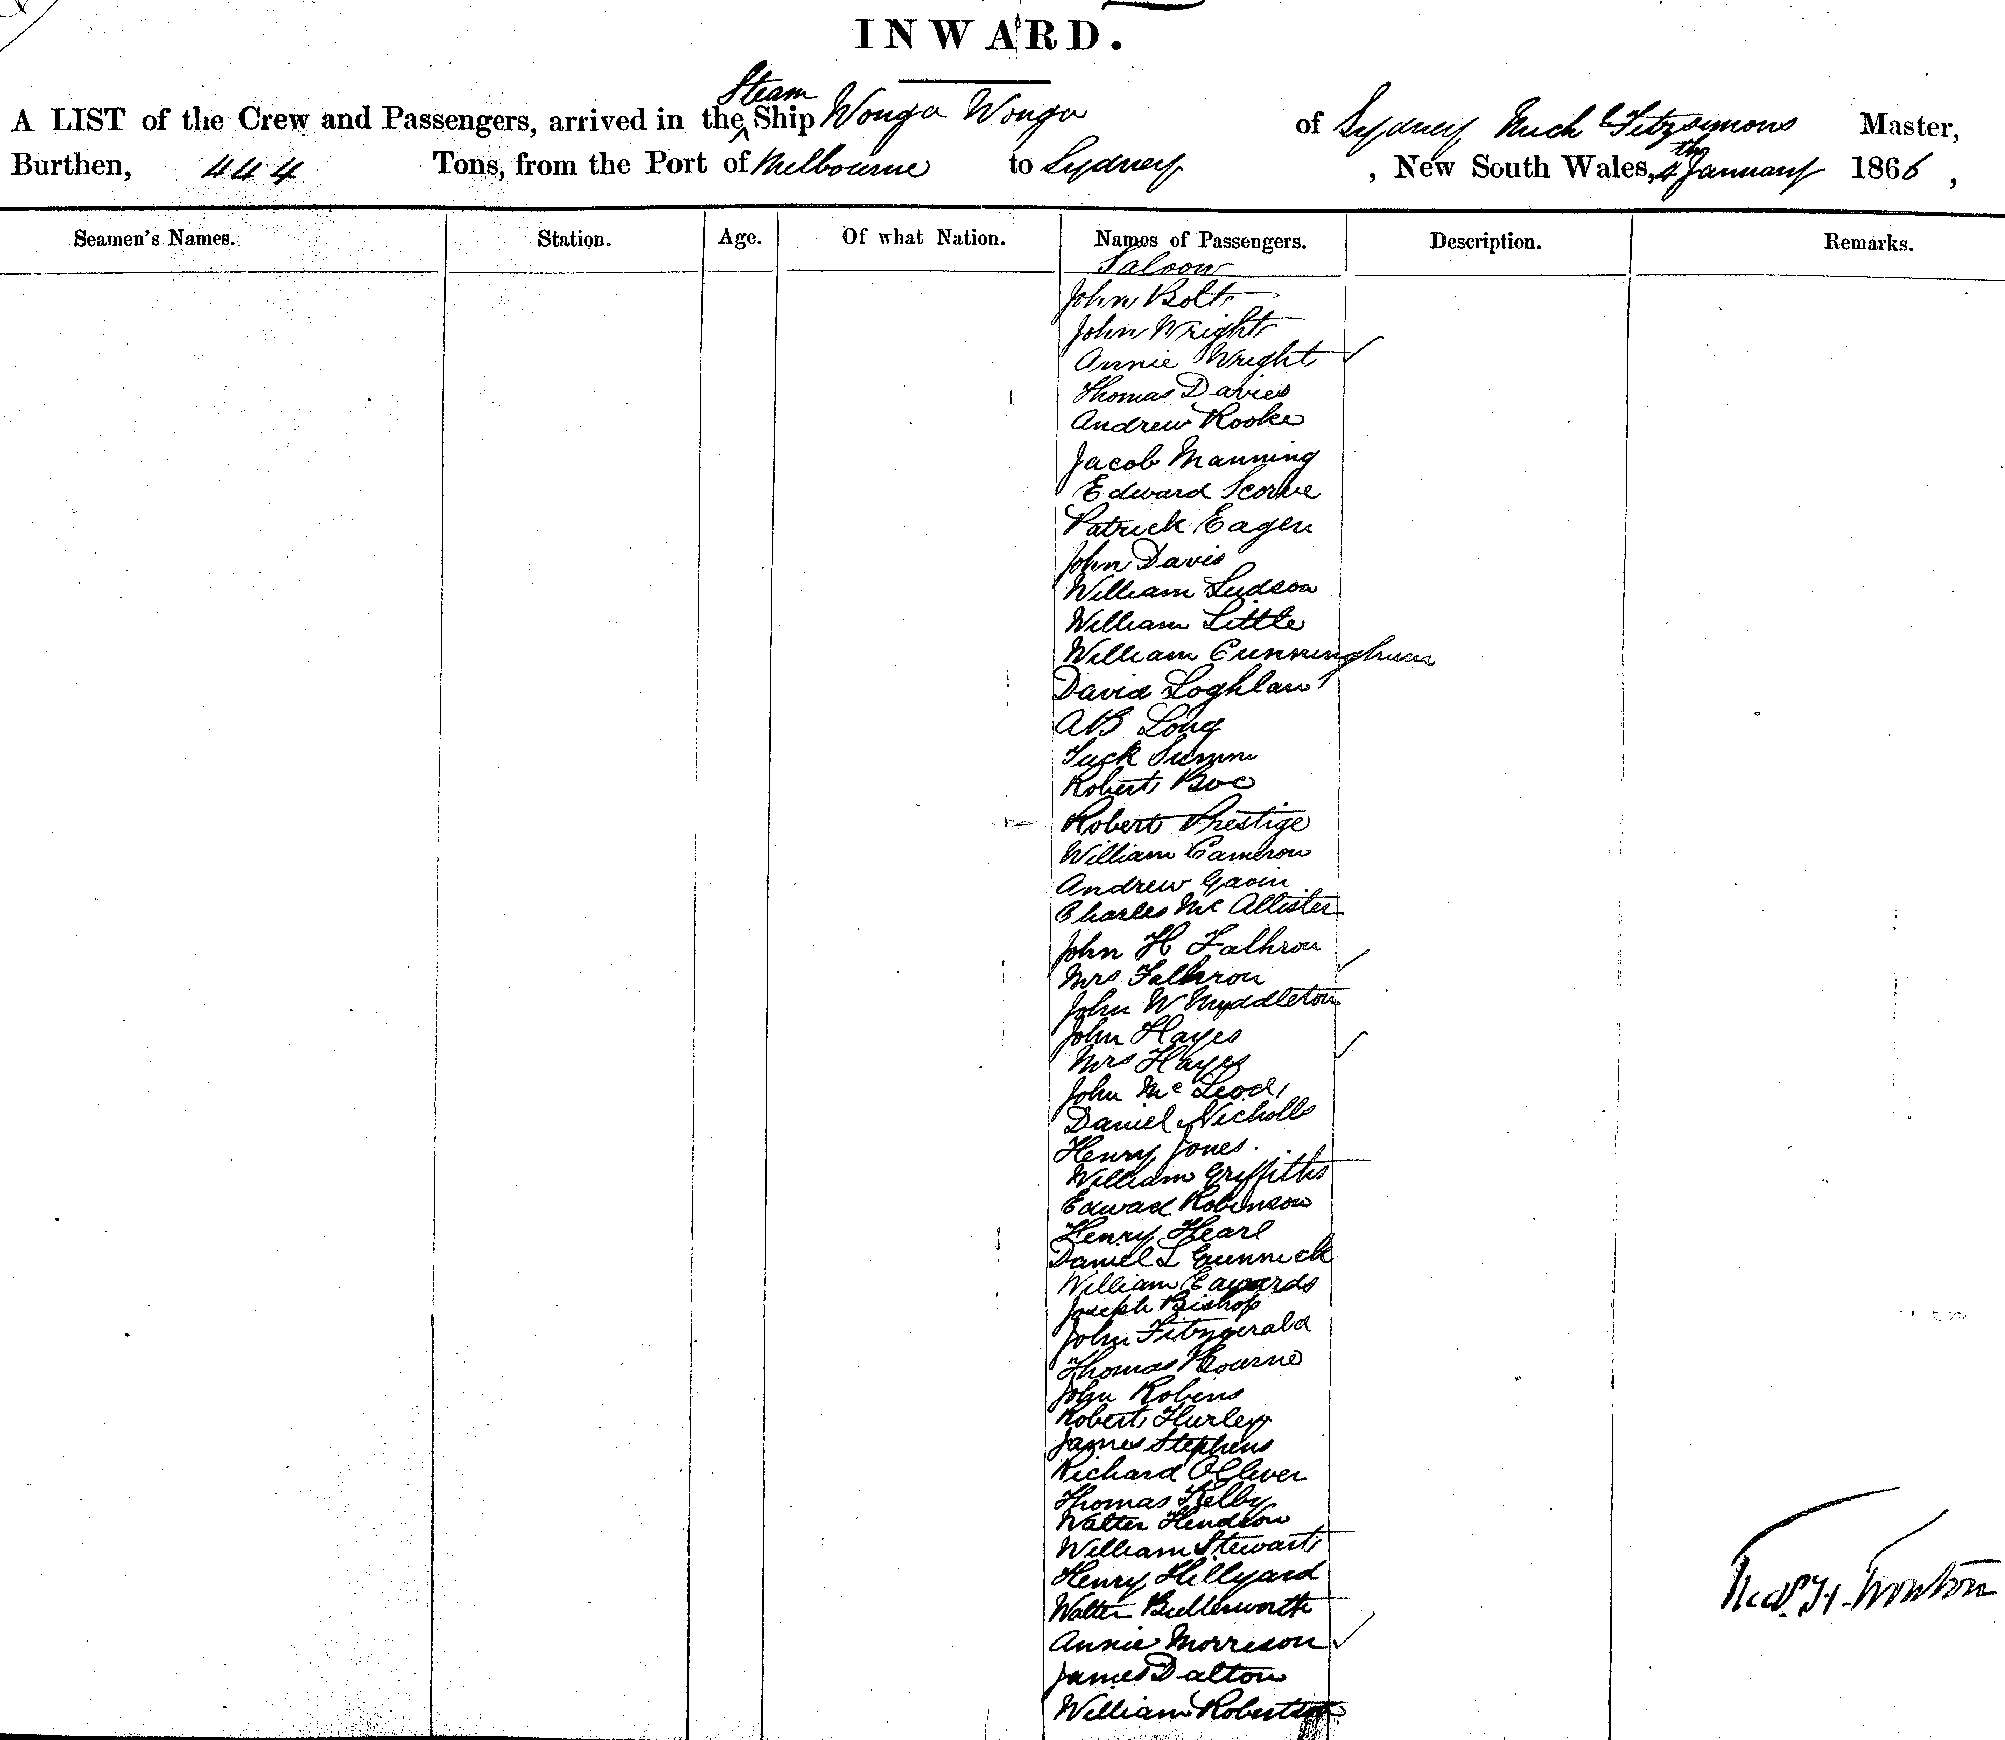 INWARD.
Steam
A LIST of the Crew and Passengers, arrived in the Ship Wonga Wonga of Sydney Mich Fitzsymons Master,
Burthen, 444 Tons, from the Port of Melbourne to Sydney, New South Wales, 4th January 1866,
Seamen's Names. Station. Age. Of what Nation. Names of Passengers. Description. Remarks.
Saloon
John Bolt
John Wright
Annie Wright
Thomas Davies
Andrew Rooke
Jacob Manning
Edward
Patrick Eagen
John Davis
William Judson
William Little
William Cunningham
David Loghlan
AB Long
Robert
Robert Prestige
William Cameron
Andrew Gavin
Charles McAllister
John H Falhron
Mrs Falhron
John W Myddleton
John Hayes
Mrs Hayes
John McLeod
Daniel Nicholls
Henry Jones.
William Griffiths
Edward Robinson
Henry Hearl
Daniel L Gunnick
William Edwards
Joseph Bishop
John Fitzgerald
Thomas Bourne
John Robins
Robert Hurley
James Stephens
Richard Olliver
Thomas Kelby
Walter
William Stewart
Henry Hillyard
Walter Butterworth
Annie Morrison
James Dalton
William Robertson